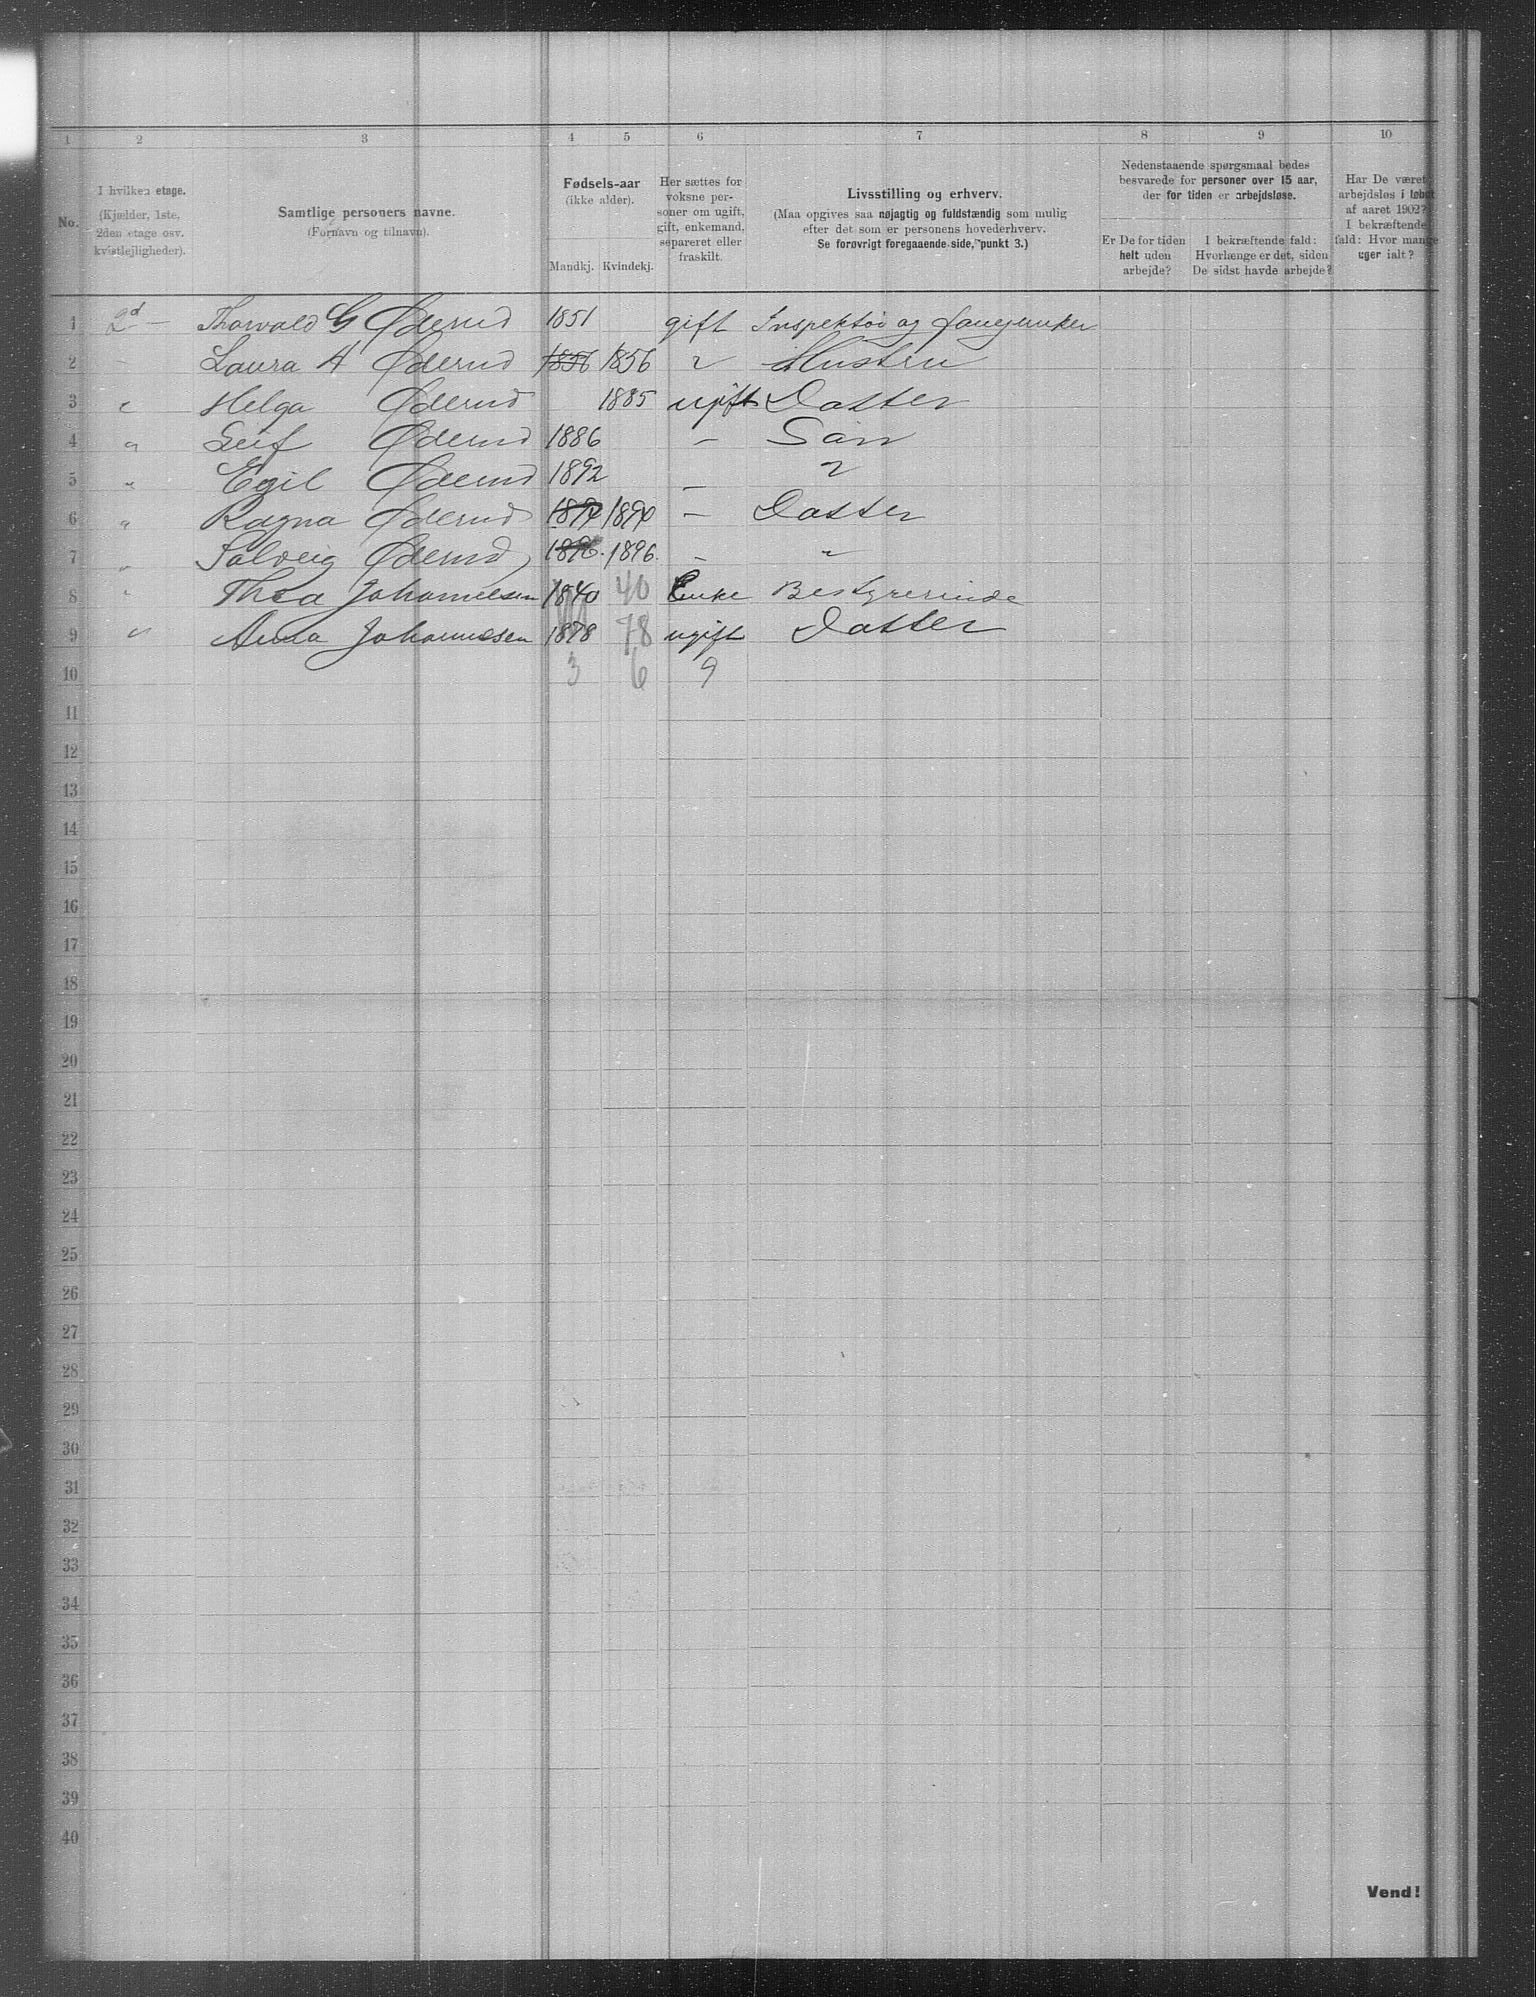 1 2 3 4 5 6 7 8 9 10
No.
I hvilken etage.
(Kjælder, 1ste,
2den etage osv.
kvistlejligheder).
Samtlige personers navne.
(Fornavn og tilnavn).
Fødsels-aar
(ikke alder).
Mandkj. Kvindekj.
Her sættes for
voksne per-
soner om ugift,
gift, enkemand,
separeret eller
fraskilt.
Livsstilling og erhverv.
(Maa opgives saa nøjagtig og fuldstændig som mulig
efter det som er personens hovederhverv.
Se forøvrigt foregaaende side, punkt 3.)
Nedenstaaende spørgsmaal bedes
besvarede for personer over 15 aar,
der for tiden er arbejdsløse.
Er De for tiden
helt uden
arbejde?
I bekræftende fald:
Hvorlænge er det, siden
De sidst havde arbejde?
Har De været
arbejdsløs i løbet
af aaret 1902?
I bekræftende
fald: Hvor mange
uger ialt?
1 2d — Thorvald G Øderud 1851 gift Inspektør og
2 Laura A Øderud 1856 1856 " Hustru
3 " Helga Øderud 1885 ugift Datter
4 " Leif Øderud 1886 — Søn
5 " Egil Øderud 1892 — "
6 " Ragna Øderud 1894 1890 — Datter
7 " Solveig Øderud 1896. 1896. — "
8 " Thea Johannesen 1840 40 Enke Bestyrerinde
9 " Anna Johannesen 1878 78 ugift Datter
10 3 6 9
11
12
13
14
15
16
17
18
19
20
21
22
23
24
25
26
27
28
29
30
31
32
33
34
35
36
37
38
39
40
Vend!